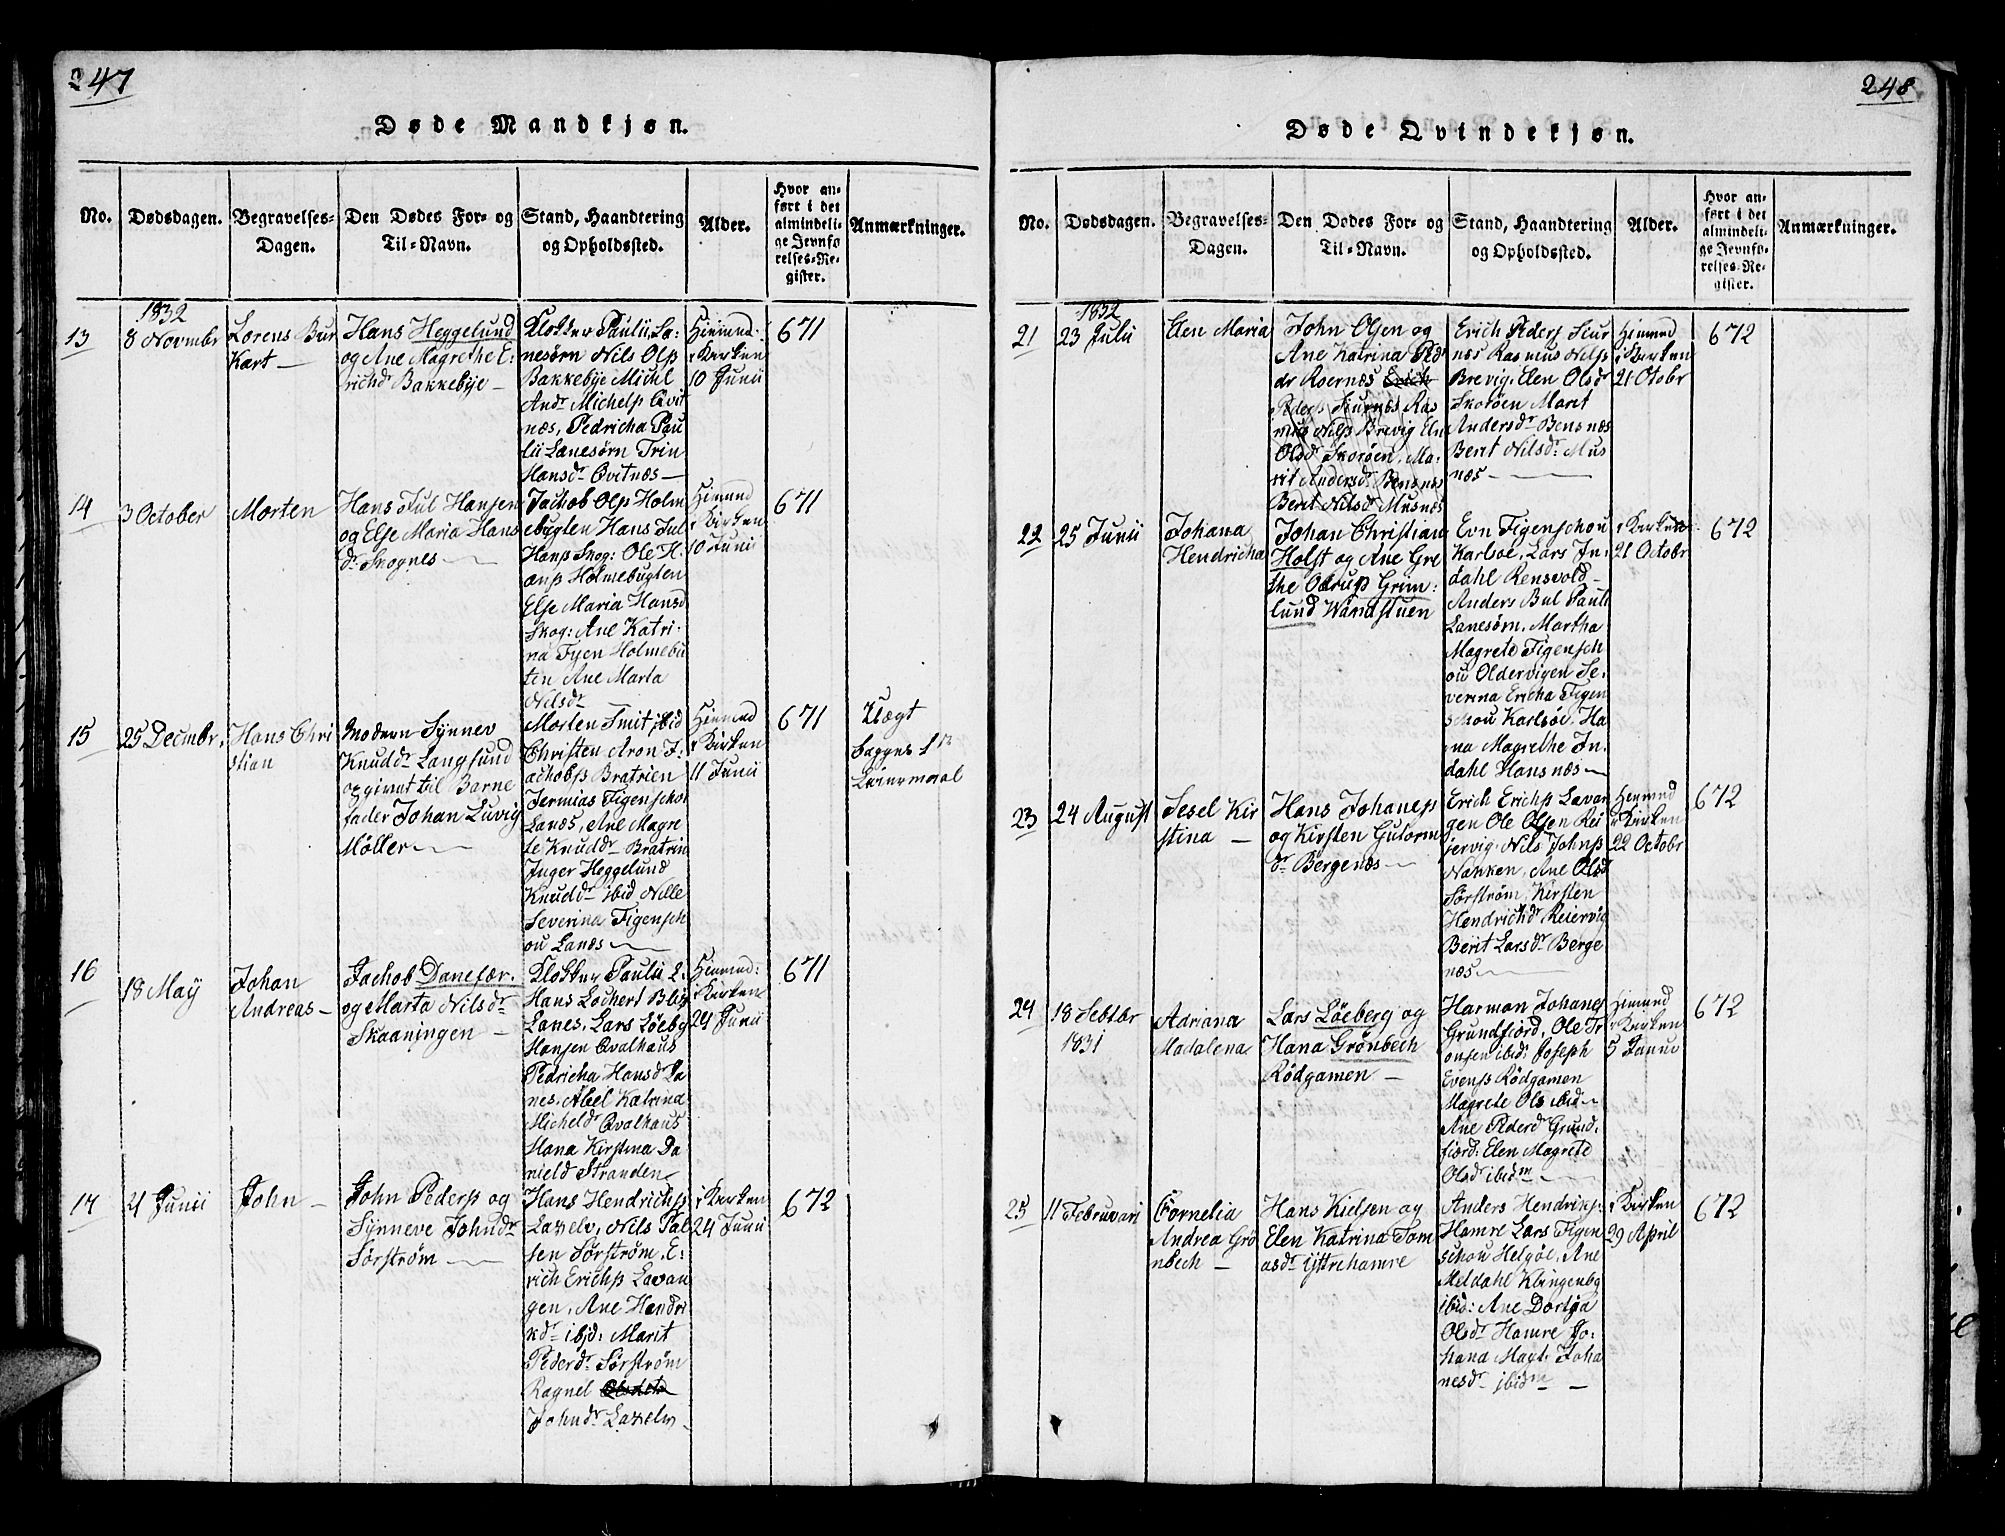 247
Døde Mandkjøn.
No.
Dødsdagen.
Begravelses-
Dagen.
Den Dødes For- og
Til-Navn.
Stand, Haandtering
og Opholdssted.
Alder.
Hvor an-
ført i det
almindeli-
ge Jevnfø
relses-Re-
gister.
Anmærkninger.
13
1832
8 Novmbr
Lorens Bur
Kart —
Hans Heggelund
og Ane Magrethe E:
richdr Bakkebÿe —
Klokker Paulii La-
nesørn Nils Ols
Bakkebÿe Michl
Andr Michels Qvit
næs, Pedricha Pau
lii Lanesørn Trin
Hansdr Qvitnæs —
Hiemmd:
i Kirken
10 Junii
671
14
3 October
Morten
Hans Jul Hansen
og Else Maria Hans
dr Skognes —
Jachob Ols Holm
ebugten Hans Jul
Hans Skog: Ole H.
ans Holmebugten
Else Maria Hansd
Skog: Ane Katri-
na Fÿen Holmebu
ten Ane Marta
Nilsdr —
Hiemmd
i Kirken
10 Junii
671
15
25 Decmbr.
Hans Chri
stian
Modern Sÿnnev
Knuddr Langsund
opgivut til Barne
fader Johan Luvig
Møller —
Morten Smit ibid
Christen Aron J:
achobs Bratrien
Jermias Figenschou
Lanæs, Ane Magre
te Knuddr Bratrin
Inger Heggelund
Knuddr ibid Nille
Severina Figensch
ou Lanæs —
Hiemmd
i Kirken
11 Junii
671
Uægt
begges 1te
Leiermaal
16
18 Maÿ
Johan
Andreas —
Jachob Danefær.
og Marta Nilsdr
Skaaningen —
Klokker Paulii L.
Hans Lochert Blix
Lanes, Lars Løebg
Hansen Qvalhaus
Pedricha Hansd La
nes, Abel Katrina
Micheld Qvalhaus
Hana Kirstina Da
nield Stranden
Hiemmd:
i Kirken
24 Junii
671
17
21 Junii
John —
John Peders og
Sÿnneve Johndr
Sørstrøm —
Hans Hendrichs
Laxelv, Nils Pal
sen Sørstrøm, E:
rich Erichs Lavan
gen, Ane Hendri
kdr ibjd: Marit
Pederdr Sørstrøm
Ragnel
Johndr Laxelv —
i Kirken
24 Junii
672
248
Døde Qvindekjøn.
No.
Dødsdagen.
Begravelses-
Dagen.
Den Dødes For- og
Til-Navn.
Stand, Haandtering
og Opholdssted.
Alder.
Hvor an-
ført i det
almindeli-
ge Jevnfø-
relses-Re-
gister.
Anmærkninger.
21
1832
23 Julii
Elen Maria
John Olsen og
Ane Katrina Pede
dr Roernæs Erich
Peders Skurnæs Ras
mus Nils Brevig Eln
Olsd Skorøen, Ma-
rit Andersd Bensnæs
Berit Nilsd Musnæs
Erich Peders Skur
næs Rasmus Nils
Brevig, Elen Olsd
Skorøen Marit
Andersdr Bensnæs
Berit Nilsdr Mus
næs —
Hiemmd
i Kirken
21 Octobr
672
22
25 Junii
Johana
Hendricha
Johan Christian
Holst og Ane Gre
the Grim:
lund Wandstuen
Evn Figenschou
Karlsøe, Lars In-
dahl Rensvold —
Anders Bul Pauli
Lanesørn, Martha
Magrete Figensch
ou Oldervigen Se-
verina Ericha Figen
schou Karlsøe, Ha
na Magrethe In-
dahl Hansnæs —
i Kirken
21 Octobr
672
23
24 August
Sesel Kir
stina —
Hans Johanes
og Kirsten Gutorm
dr Bergenæs —
Erich Erichs Lavan
gen Ole Olsen Rei
jervig, Nils Johns
Nakken, Ane Olsd
Sørstrøm, Kirsten
Hendrichdr Reiervig
Berit Larsdr Berge
næs —
Hiemmd
i Kirken
22 Octobr
672
24
18 Sebtbr
1831
Adriana
Madalena
Lars Løeberg og
Hana Grønbech
Rødgamen —
Harman Johanes
Grundfiord, Ole Tr
onsen ibid: Joseph
Evens Rødgamen
Magrete Ols ibid —
Ane Pederd Grund.
fiord: Elen Magrete
Olsdr ibidm —
Hiemmd
i Kirken
5 Januar
672
25
11 Februvari
Cornelia
Andrea Grø
nbech —
Hans Kielsen og
Elen Katrina Tom
asdr ÿttrehamre
Anders Hendriks:
Hamre Lars Figen
schou Helgøe, Ane
Meldahl Klingenbg
ibid: Ane Dortea
Olsdr Hamre Jo:
hana Magt: Joha
nesdr ibidm —
i Kirken
29 April
672